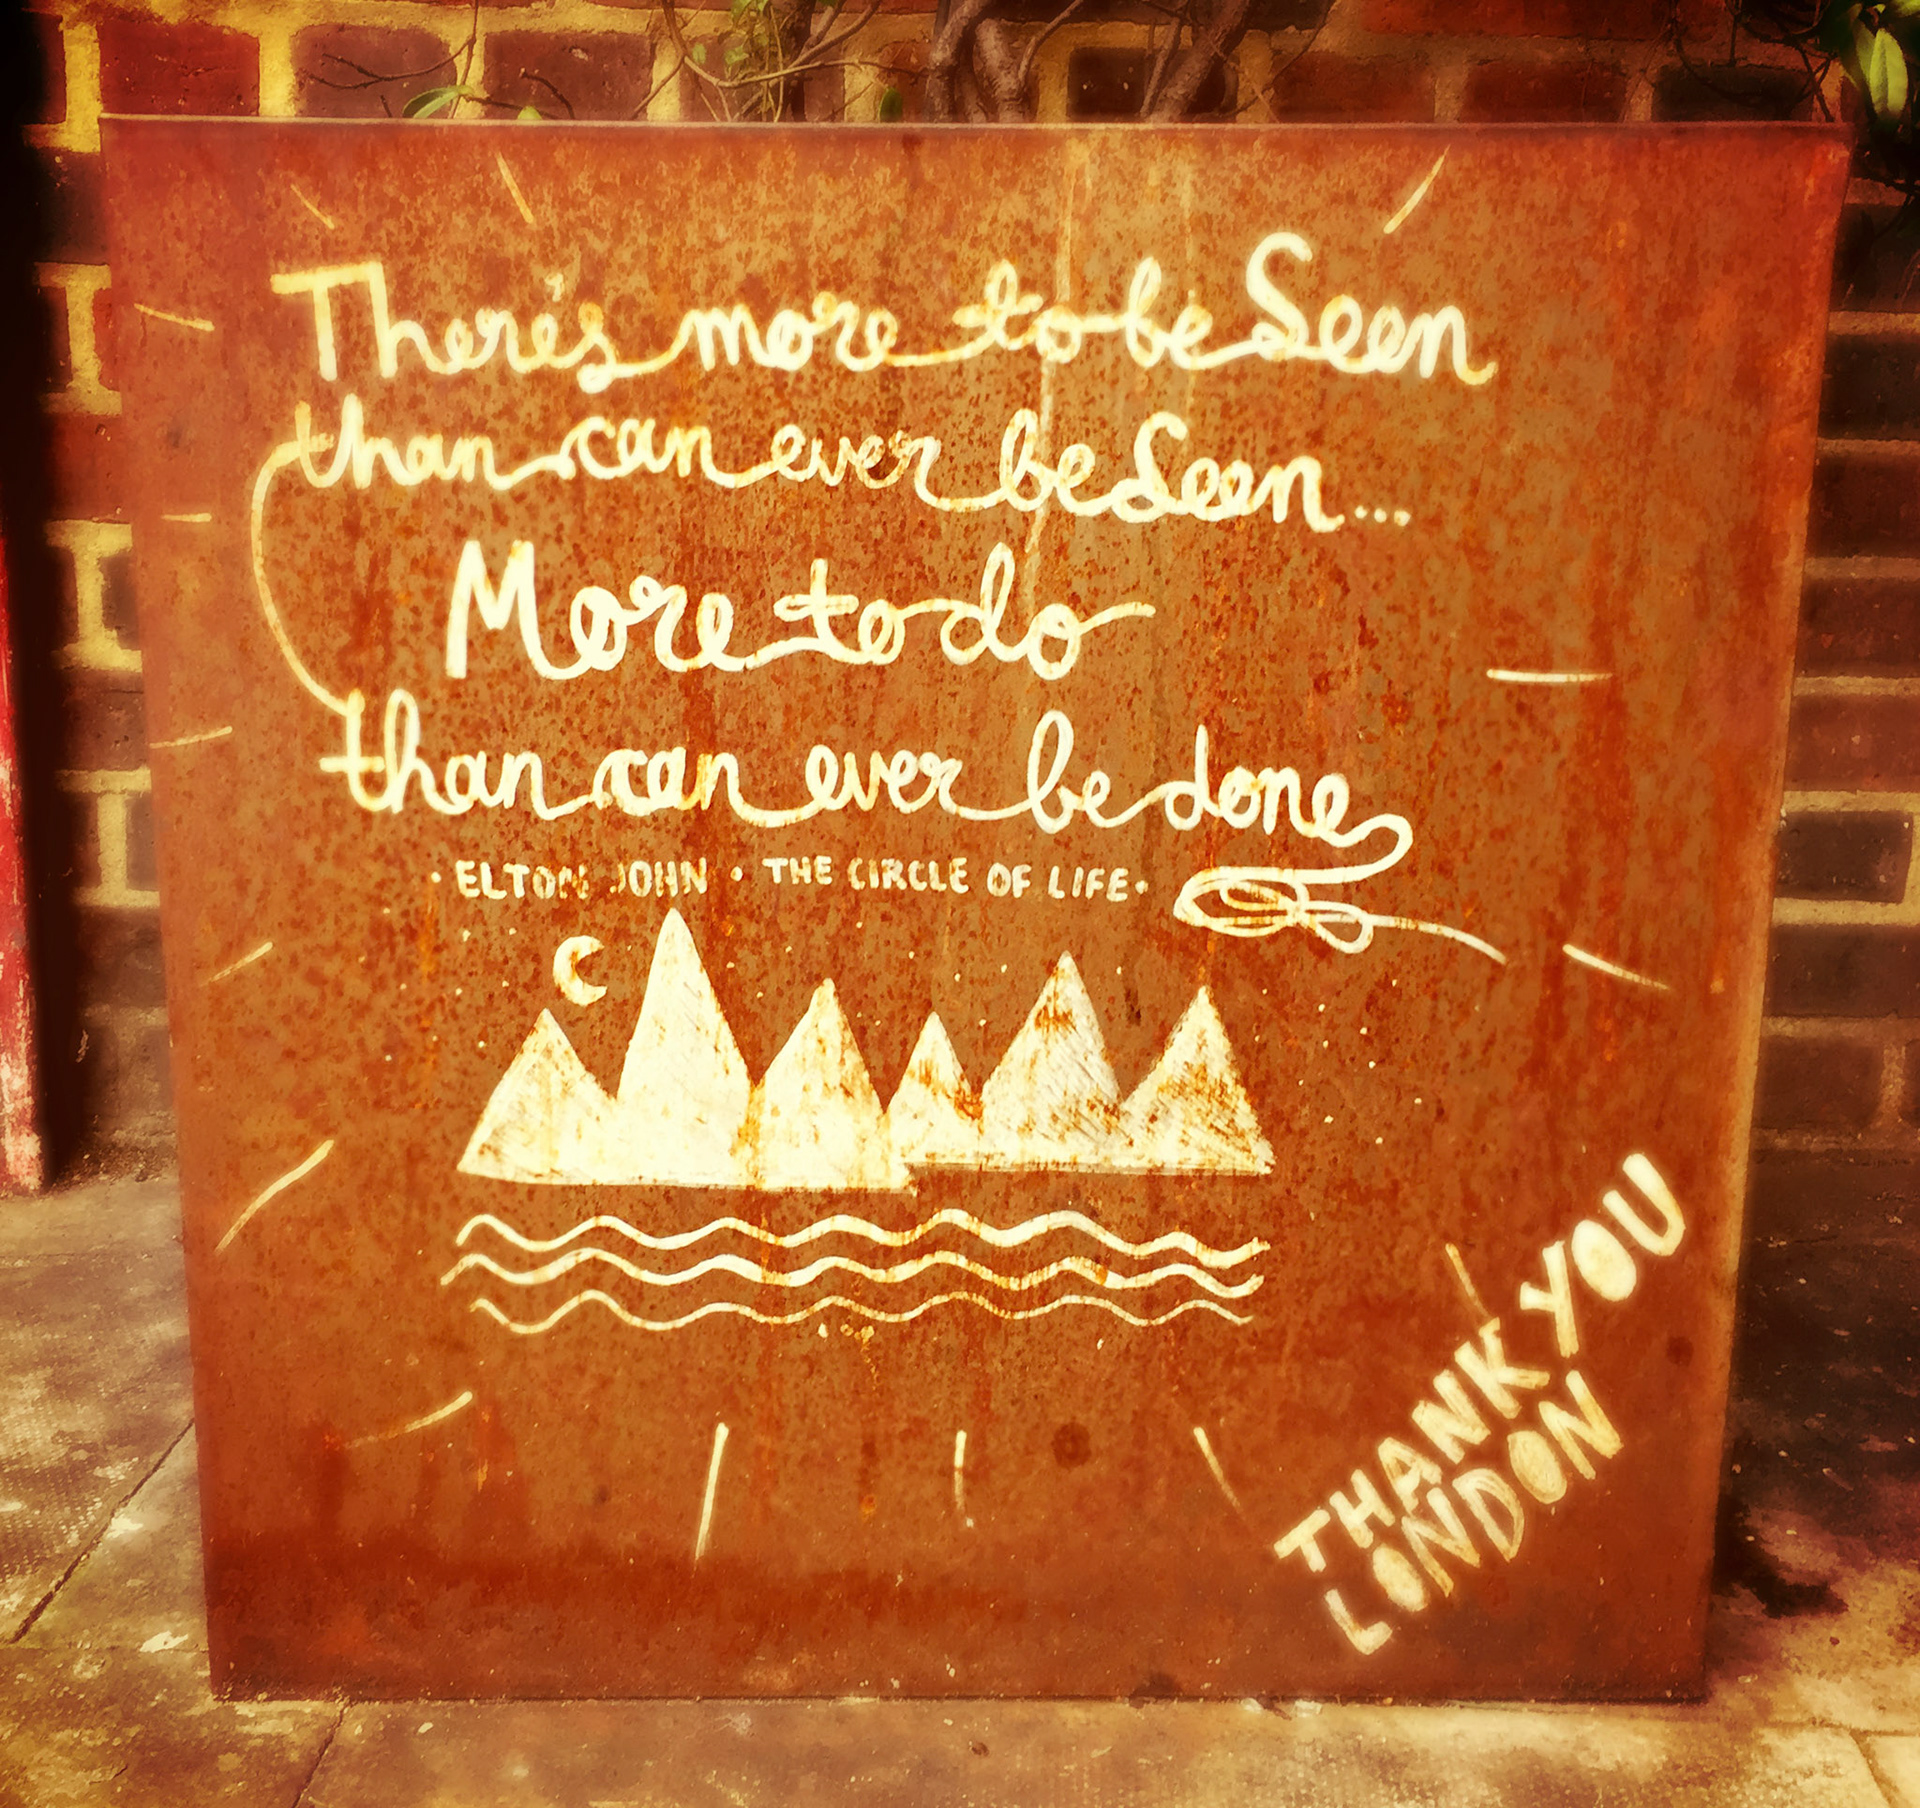 There's more to be Seen
than can ever be Seen...
More to do
than can ever be done
• ELTON JOHN • THE CIRCLE OF LIFE •
THANK YOU
LONDON